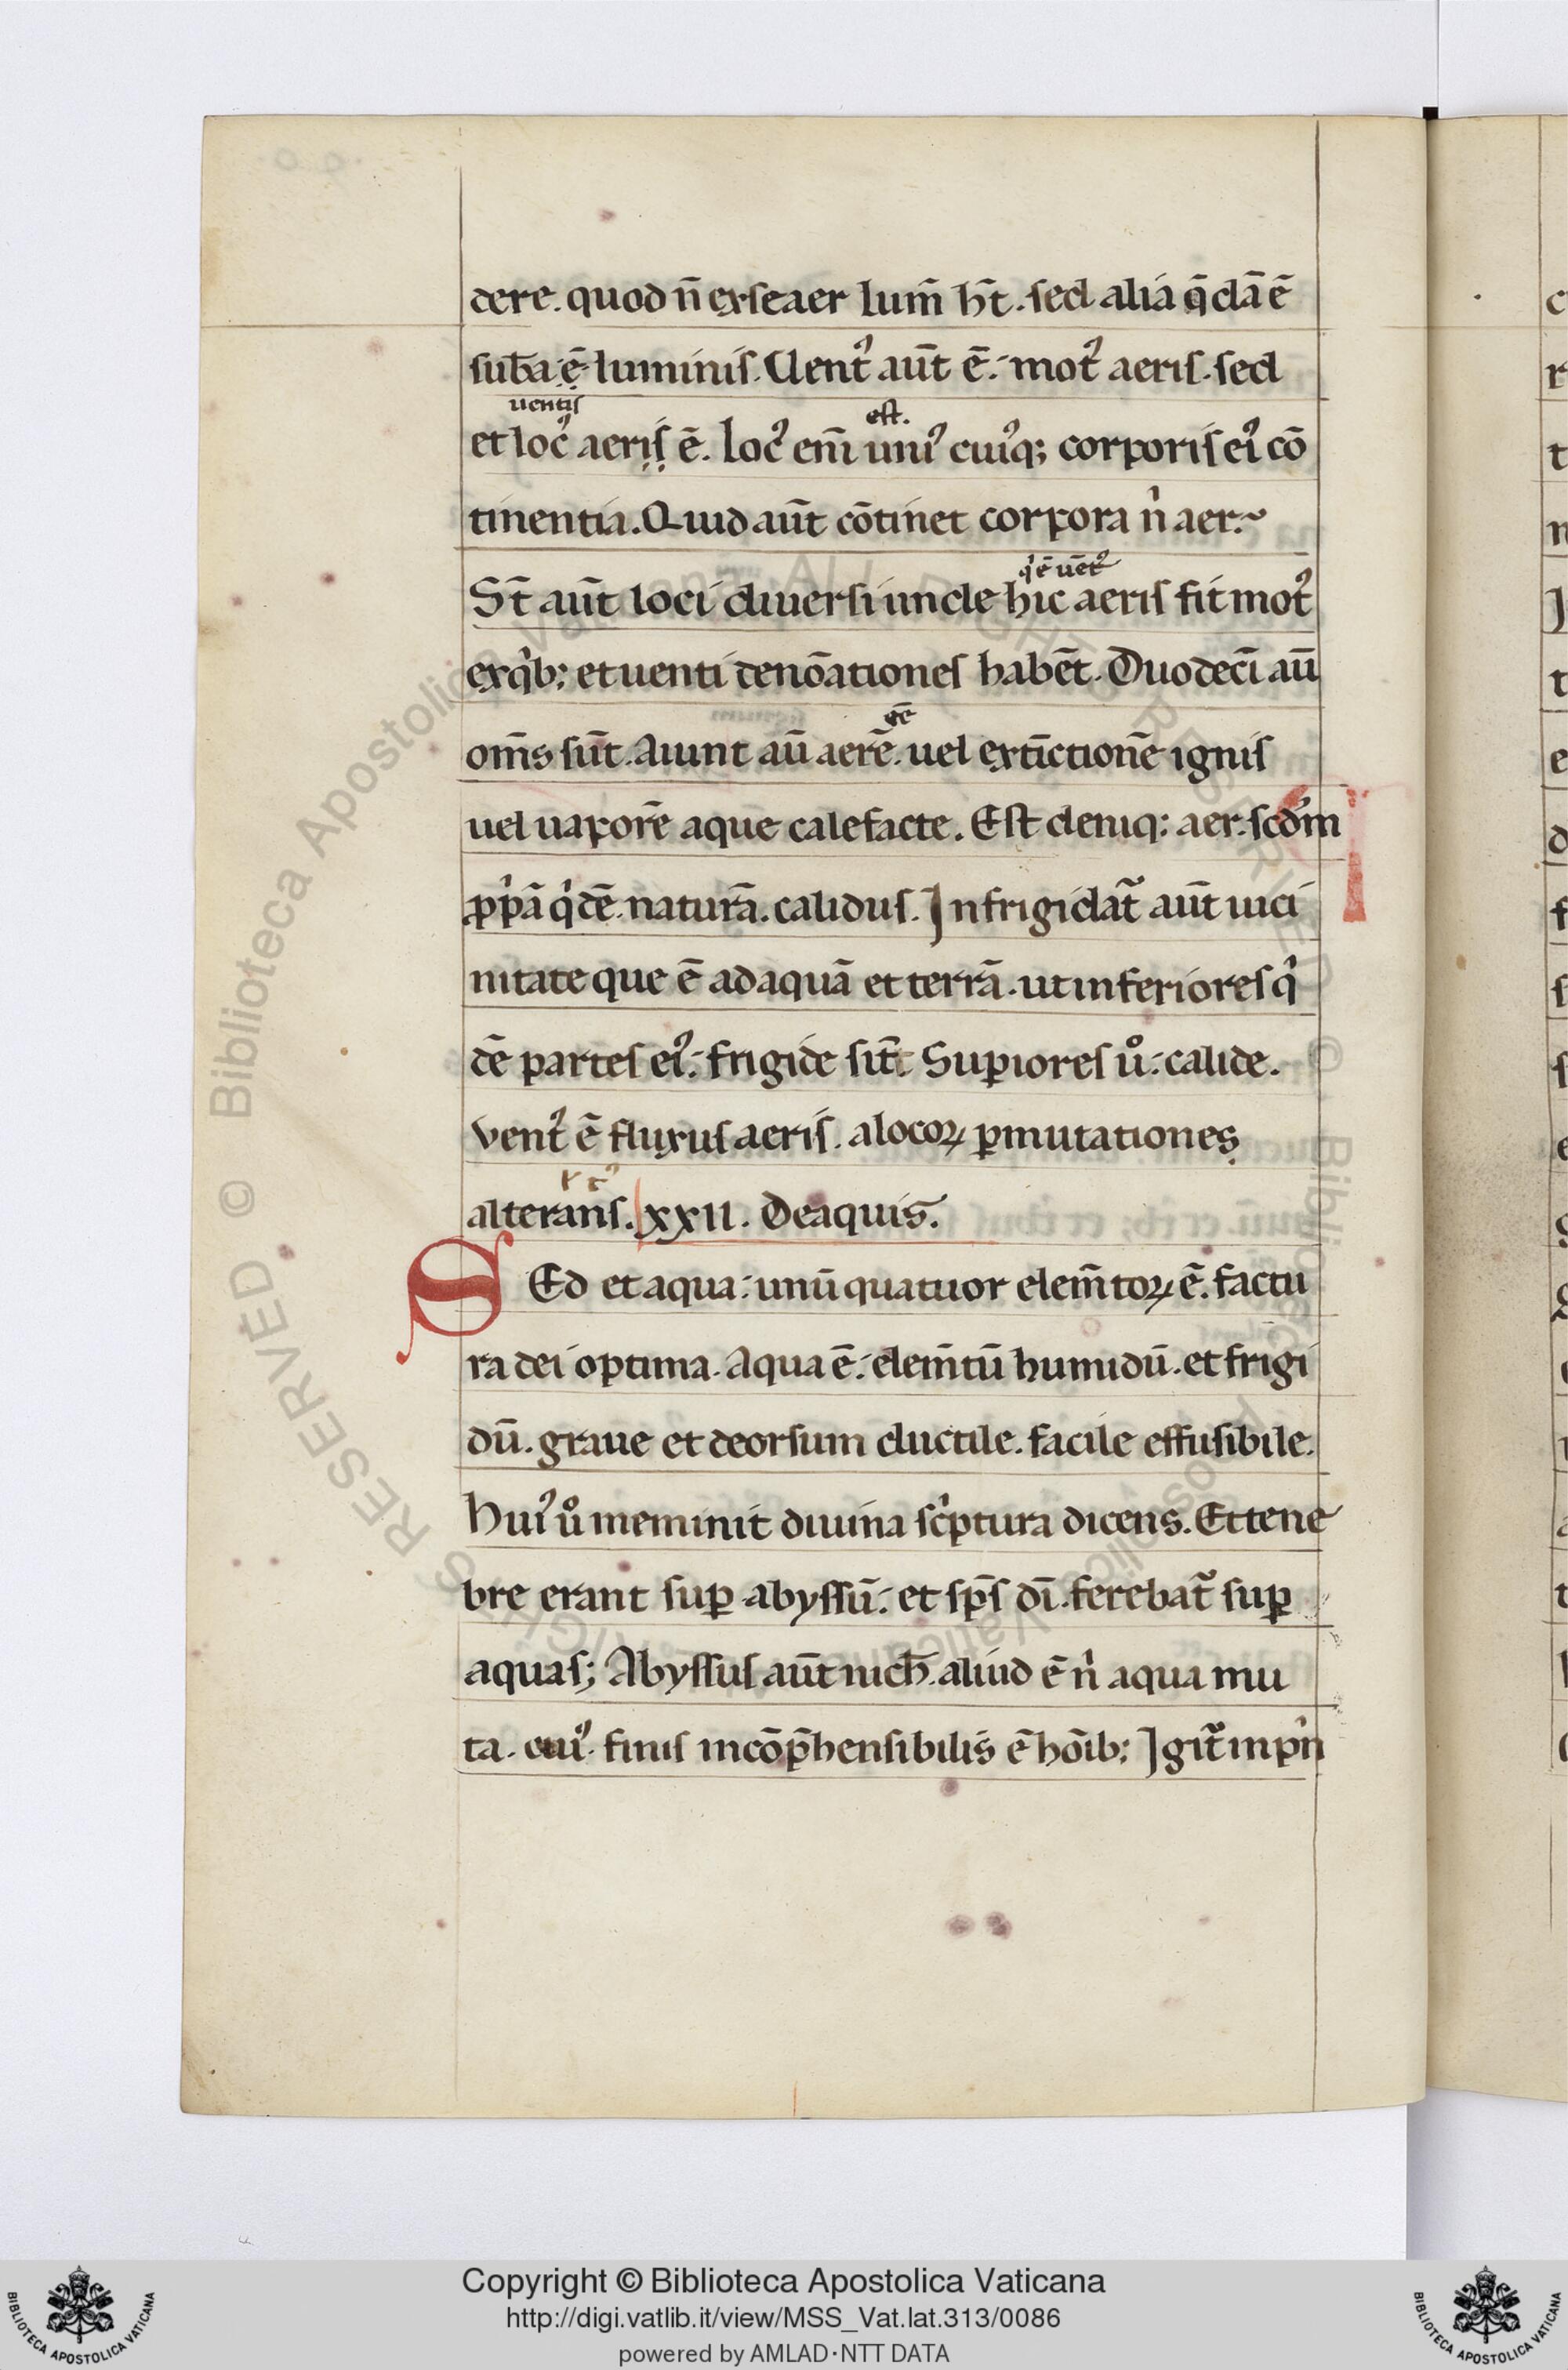 dere. quod n̄ exse aer lum̄ h̄t. sed alia q̄dā ē
suba ē luminis. Uentꝰ aūt ē. motꝰ aeris. sed
uentis
et locꝰ aeris ē. Locꝰ em̄ uniꝰ cuiꝰq; corporis eiꝰ cō
est.
tinentia. Quid aūt cōtinet corpora n̍ aer.
q̍ ē uētꝰ
St̄ aūt loci diuersi unde hic aeris fit motꝰ
exq̍b; et uenti denōationes habēt. Duodecī aū
om̄s sūt. Aiunt aū aerē. uel extīctionē ignis
eē
uel uaporē aque calefacte. Est deniq; aer. scd̄m
ꝓp̍ā q̍dē. naturā. calidus. Infrigidat᷑ aūt uici
nitate que ē ad aquā et terrā. ut inferiores q̍
dē partes eiꝰ. frigide sīt. Suꝑiores uͦ. calide.
Ventꝰ ē fluxus aeris. a locoꝝ ꝑmutationes
alterans. XXII. De aquis.
SEd et aqua. unū quatuor elem̄toꝝ ē. factu
ra dei optima. Aqua ē. elem̄tū humidū. et frigi
dū. graue et deorsum ductile. facile effusibile.
Huiꝰ uͦ meminit diuina sc̍ptura dicens. Et tene
bre erant suꝑ abyssū. et sp̄s dī. ferebat᷑ suꝑ
aquas; Abyssus aūt nich̄. aliud ē n̍ aqua mu
ta. cuiꝰ. finis incōp̄hensibilis ē hōib; Igit᷑ in p̍n
Copyright © Biblioteca Apostolica Vaticana
http://digi.vatlib.it/view/MSS_Vat.lat.313/0086
powered by AMLAD·NTT DATA
BIBLIOTECA APOSTOLICA VATICANA
BIBLIOTECA APOSTOLICA VATICANA
© Biblioteca Apostolica Vaticana ALL RIGHTS RESERVED